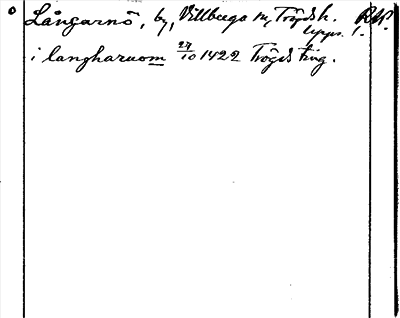 Långarnö, by, Villberga sn, Trögds h. RW.
Upps. l.
i langharnom 27/10 1422 Trögds ting.